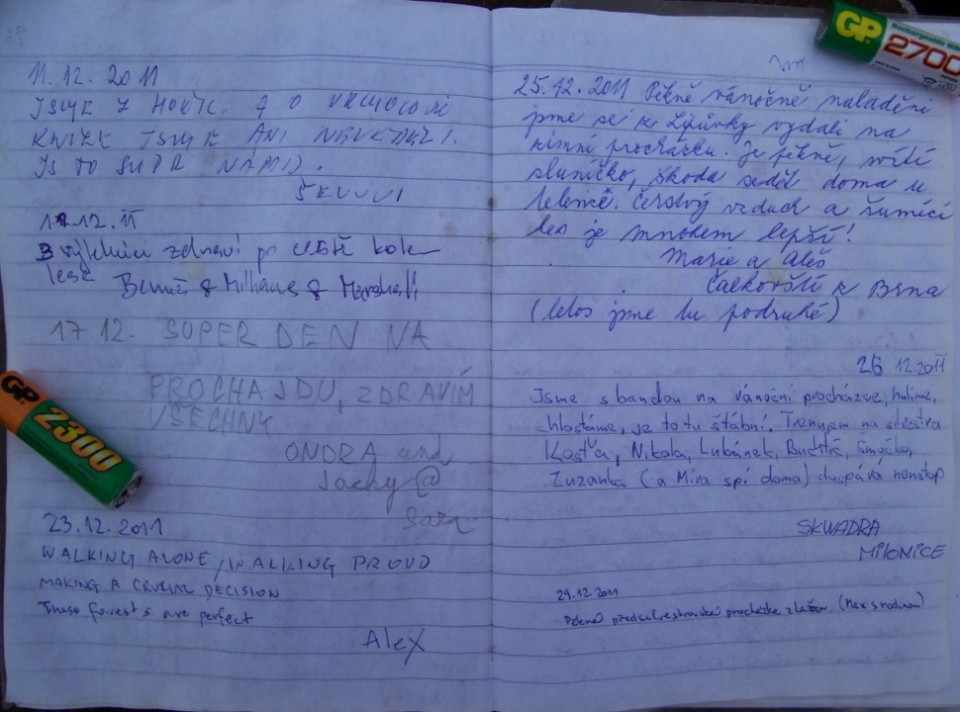 11.12.2011
JSME Z HOŘIC. A O VRCHOLOVÉ
KNIZE JSME ANI
JE TO SUPR
12.12.11
zdraví po cestě kole
lese
17.12. SUPER DEN NA
PROCHAJDU, ZDRAVÍM
VŠECHNY
ONDRA and
Jacky @
Sara
23.12.2011
WALKING ALONE, WALKING PROUD
MAKING A CRUCIAL DECISION
These forests are perfect
Alex
GP
2300
GP
2700
25.12.2011 Pěkně vánočně naladěni
jsme se k Lipůvky vydali na
zimní procházku. Je pěkně, svítí
sluníčko, škoda sedět doma u
televize. Čerstvý vzduch a šumící
les je mnohem lepší!
Marie a Aleš
z Brna
(letos jsme tu podruhé)
26 12.2011
Jsme s bandou na vánoční procházce, hulíme,
chlastáme, je to tu štábní. Trénujem na silvestra
Kosťa, Nikola, Lubánek, Smečka,
Zuzanka (a Míra spí doma) chrápává nonstop
SKWADRA
MILONICE
29.12.2011
předsilvestrovská procházka z Lažan. (Max s rodinou)